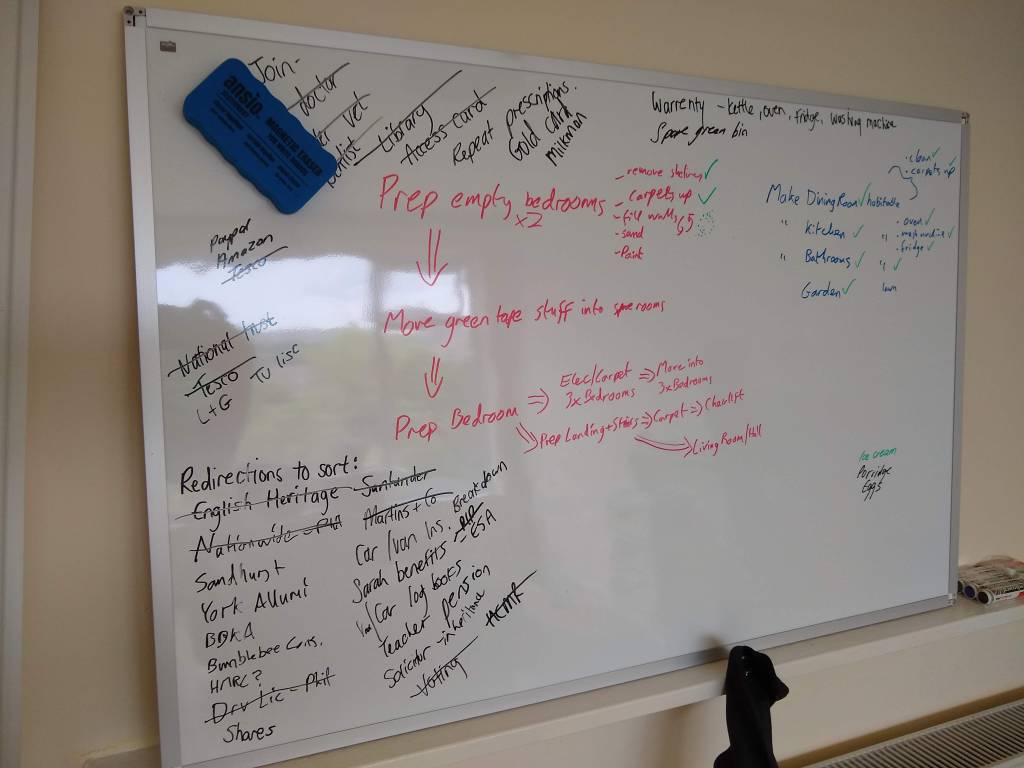 Join-
doctor
vet
Library
Access Card
Repeat prescriptions.
Gold card
milkman
ansio.
MAGNETIC ERASER
Warrenty - kettle, oven, fridge, washing machine
Spare green bin
Prep empty bedrooms
x2
- remove shelving ✓
- carpets up ✓
- fill walls
- sand
- Paint
Move green tape stuff into spare rooms
Prep Bedroom ⇒ Elec/Carpet 3x Bedrooms ⇒ Move into 3x Bedrooms
Prep Landing + Stairs ⇒ Carpet ⇒ Chairlist
Living Room/Hall
• clean ✓
• carpets up ✓
Make Dining Room ✓ habitable
" Kitchen ✓ "
• oven ✓
• wash machine ✓
• fridge ✓
" Bathrooms ✓ " ✓
Garden ✓ lawn
Paypal
Amazon
Tesco
National Trust
Tesco
TV lisc
L+G
Ice cream
Porridge
Eggs
Redirections to sort:
English Heritage
Nationwide - Phil
Sandhurst
York Allumi
BDKA
Bumblebee Cons.
HMRC?
Drv Lic - Phil
Shares
Santander
Martins + Co
Car/van Ins. Breakdown
Sarah benefits - PIP
- ESA
Van/Car log books
Teacher pension
Solicitor - inheritance
HCMR
Voting